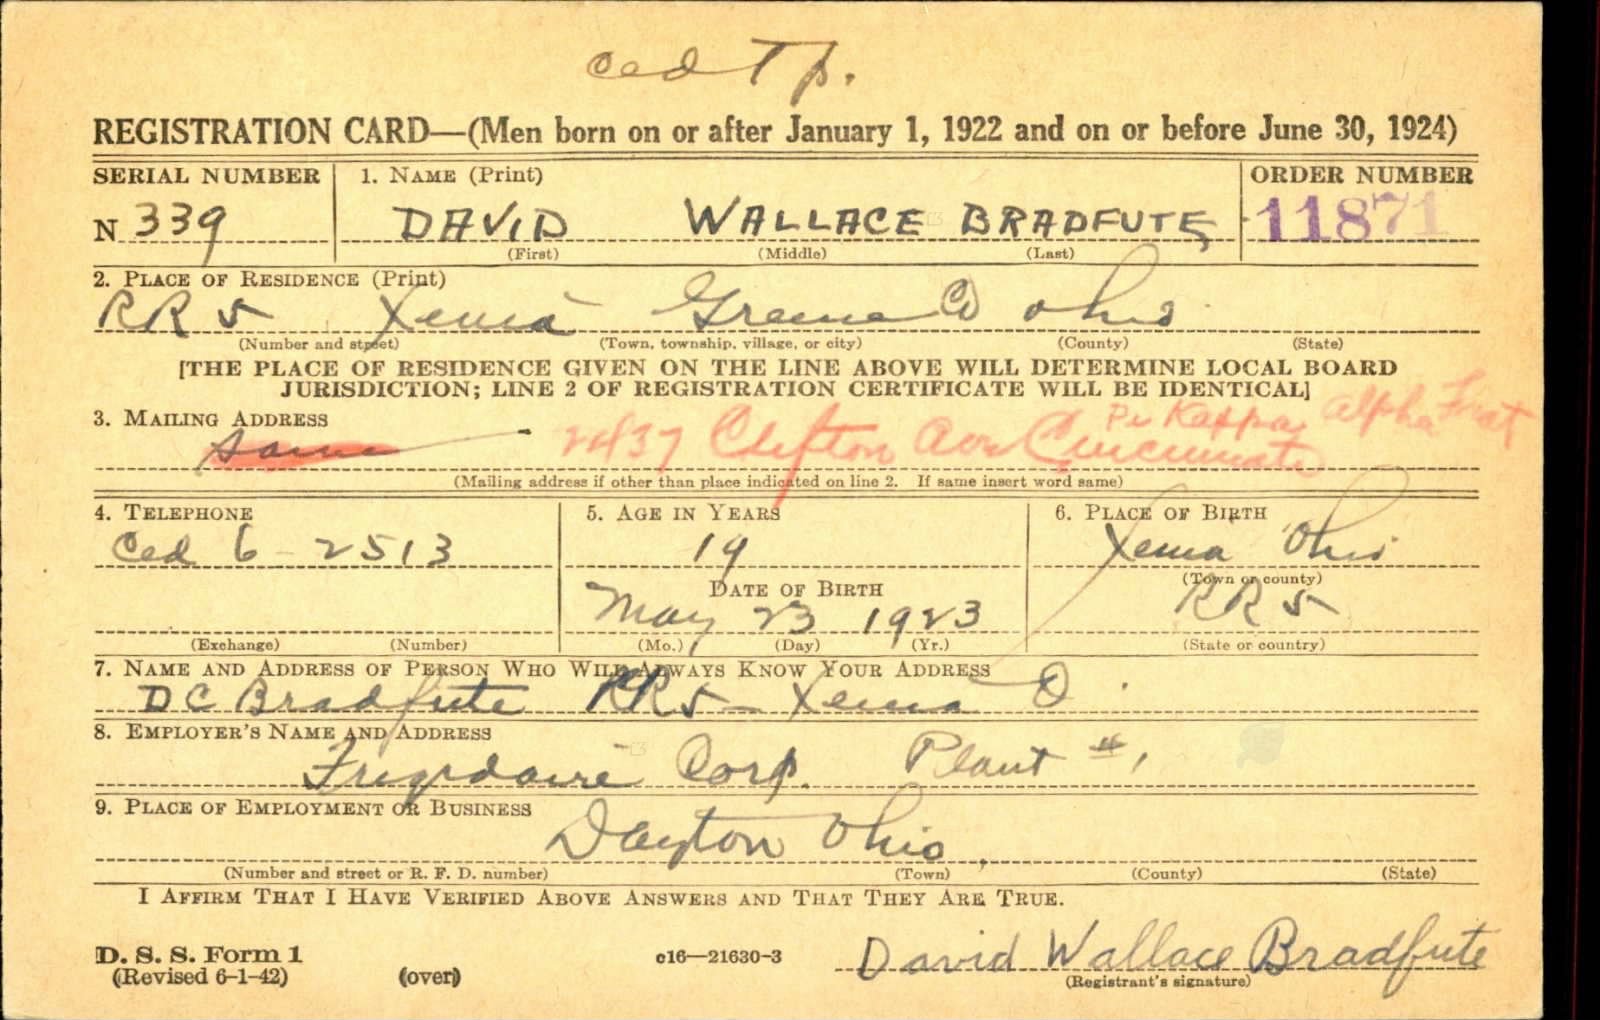 Ced Tp.
REGISTRATION CARD—(Men born on or after January 1, 1922 and on or before June 30, 1924)
SERIAL NUMBER 1. NAME (Print) ORDER NUMBER
N 339 DAVID WALLACE BRADFUTE 11871
(First) (Middle) (Last)
2. PLACE OF RESIDENCE (Print)
RR 5 Xenia Greene Co Ohio
(Number and street) (Town, township, village, or city) (County) (State)
[THE PLACE OF RESIDENCE GIVEN ON THE LINE ABOVE WILL DETERMINE LOCAL BOARD
JURISDICTION; LINE 2 OF REGISTRATION CERTIFICATE WILL BE IDENTICAL]
3. MAILING ADDRESS Pi Kappa Alpha Frat
Same 2437 Clifton Ave Cincinnati
(Mailing address if other than place indicated on line 2. If same insert word same)
4. TELEPHONE 5. AGE IN YEARS 6. PLACE OF BIRTH
Ced 6-2513 19 Xenia Ohio
DATE OF BIRTH (Town or county)
May 23 1923 RR 5
(Exchange) (Number) (Mo.) (Day) (Yr.) (State or country)
7. NAME AND ADDRESS OF PERSON WHO WILL ALWAYS KNOW YOUR ADDRESS
D C Bradfute RR5 - Xenia O.
8. EMPLOYER'S NAME AND ADDRESS
Frigidaire Corp. Plant #1
9. PLACE OF EMPLOYMENT OR BUSINESS
Dayton Ohio
(Number and street or R. F. D. number) (Town) (County) (State)
I AFFIRM THAT I HAVE VERIFIED ABOVE ANSWERS AND THAT THEY ARE TRUE.
D. S. S. Form 1 c16—21630-3 David Wallace Bradfute
(Revised 6-1-42) (over) (Registrant's signature)